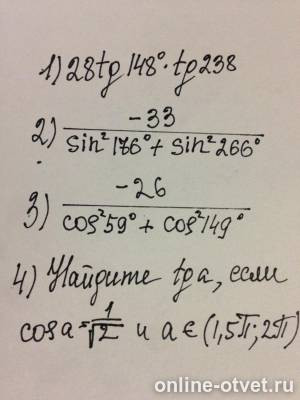 1) 28tg148°·tg238
2) -33
sin²176°+ sin²266°
3) -26
cos²59°+ cos²149°
4) Найдите tg a, если
cos a = 1/√2 и a ∈ (1,5π; 2π)
online-otvet.ru